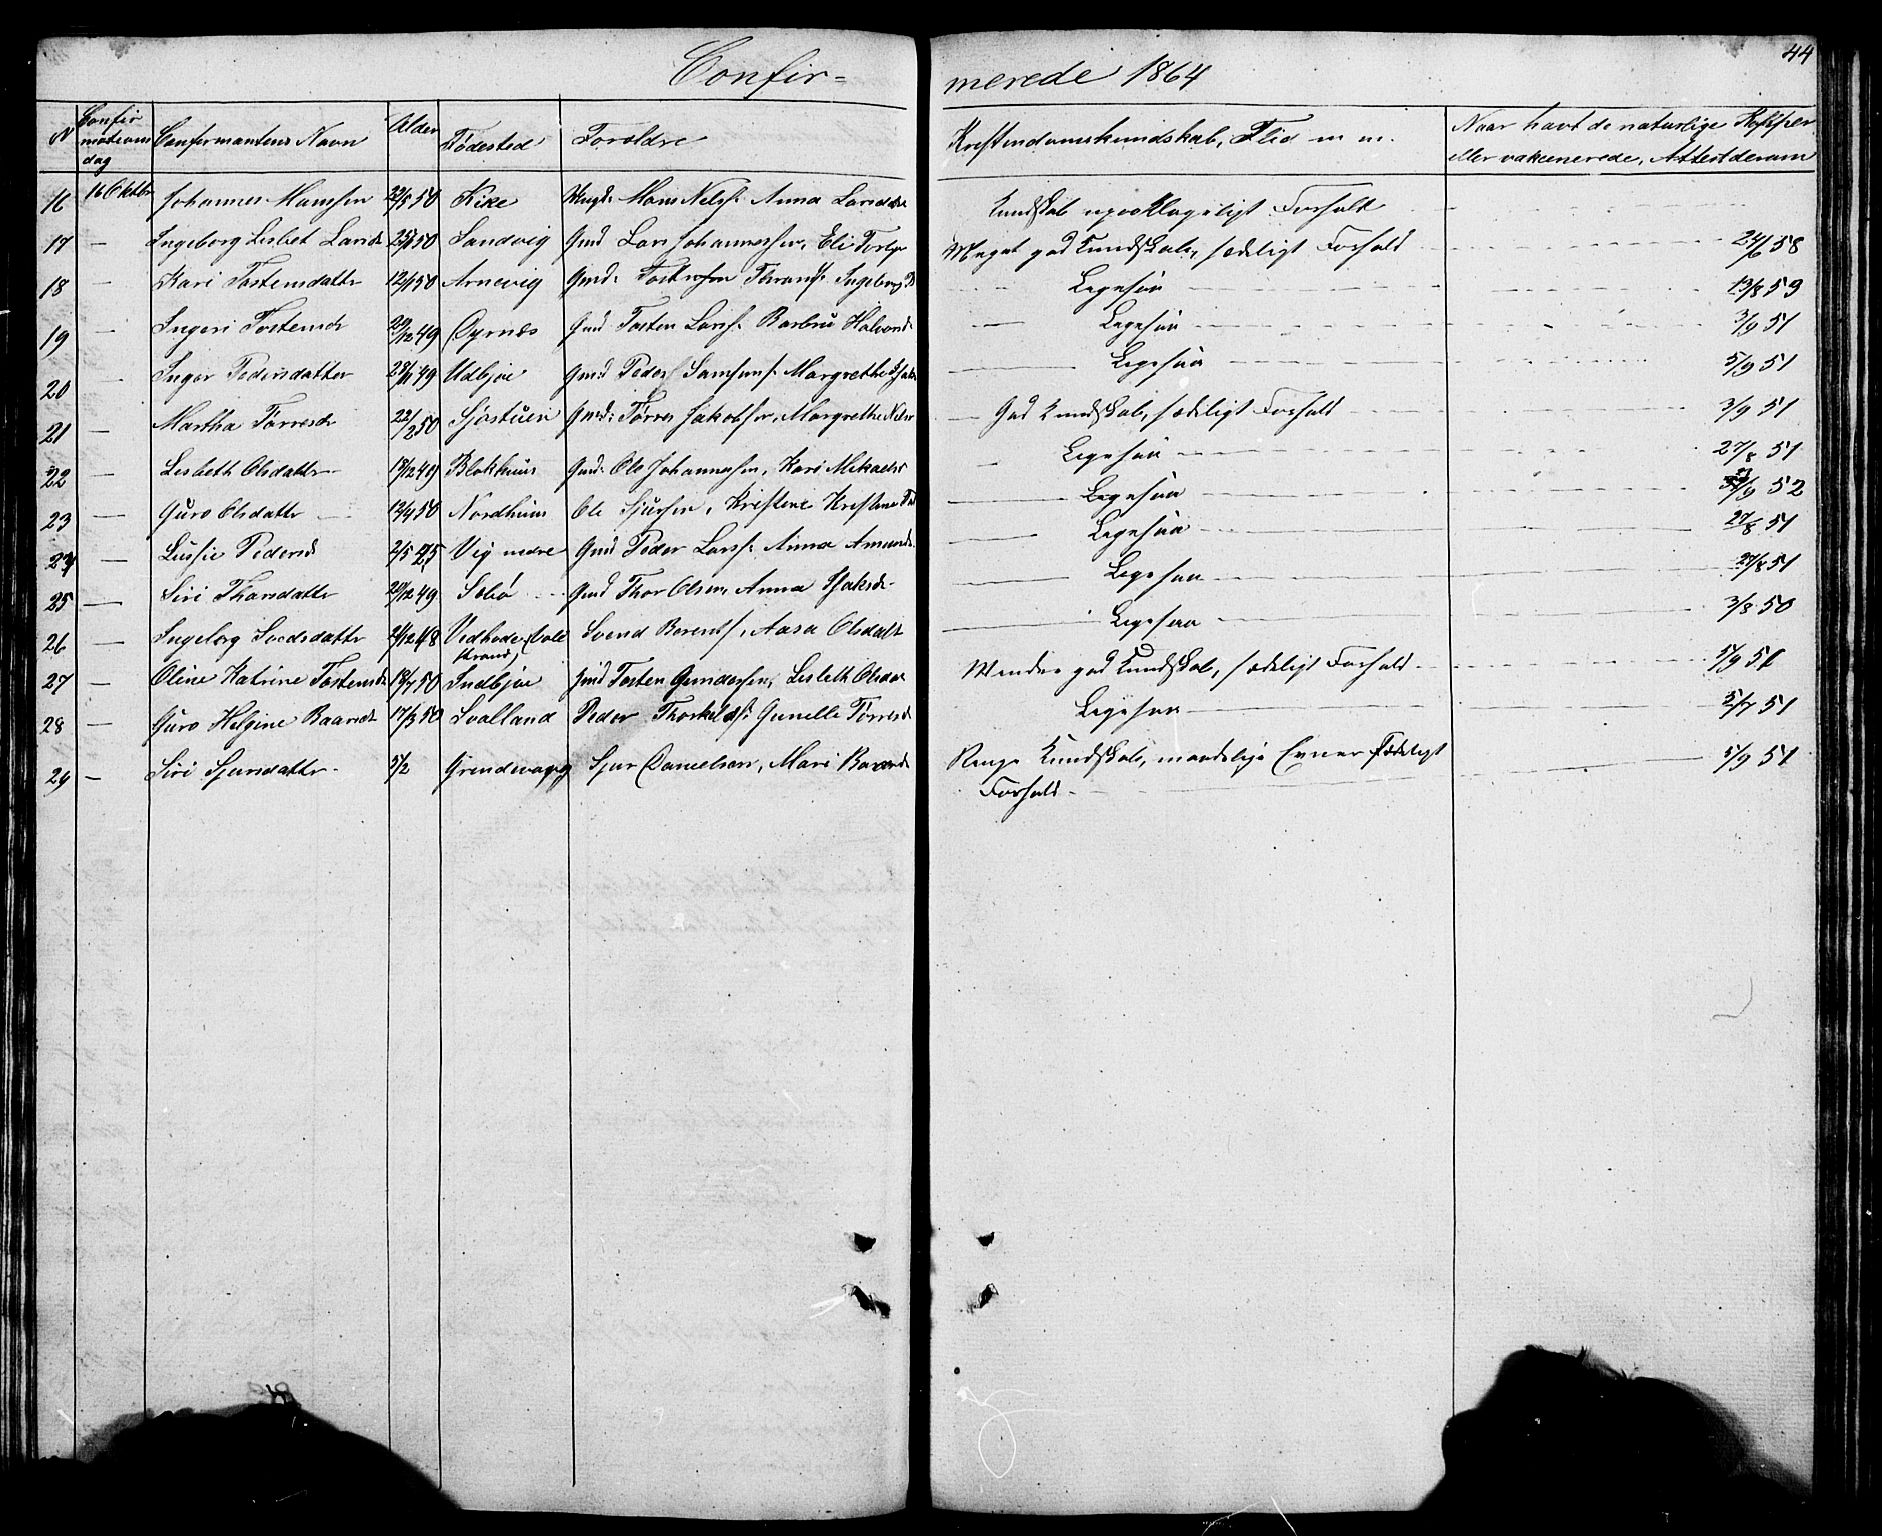 44
Confir-
merede 1864
N Confirmations dag Confirmantens Navn Alder Fødested Forældre Kristendomskundskab, Flid m. m. Naar havt de naturlige Kopper
eller vakcenerede, Attest derom
16 16 Oktbr Johannes Hansen 22/5 50 Kike Hans Nels: Anna Larsdtr Kundskab upaaklageligt Forhold
17 — Ingeborg Lisbet Larsdr 50 Sandvig Gmd Lars Johannessen, Eli Meget god Kundskab, sædeligt Forhold 24/6 58
18 — Kari Tostensdatter 12/1 50 Arnevig Gmd: Ingeborg Ligesaa 13/8 59
19 — Ingeri Tostensdr 29/12 49 Øyrnæs Gmd Tosten Larss: Barbru Halvorsdr — Ligesaa 3/9 51
20 — Inger Pedersdatter 49 Udbjoe Gmd Peder Samsons: Margrethe Ligesaa 5/9 51
21 — Martha Tørresdr 22/2 50 Sjostuen Gmd: Tørres Jakobsen, Margrethe Nelsr — God Kundskab, sædeligt Forhold 3/9 51
22 — Lisbeth Olsdatter 18/12 49 Blokhuus Gmd: Ole Johannessen, Kari Mikaels — Ligesaa 27/8 51
23 — Guro Olsdatter 13/4 50 Nordhuus Ole Sjursen, Kristine — Ligesaa /9 52
24 — Lussie Pedersd 2/5 Vig nedre Gmd Peder Larss: Anna Amunds — Ligesaa 27/8 51
25 — Siri Thorsdatter 49 Sebø Gmd Thor Olsen, Anna — Ligesaa 27/8 51
26 — Ingeborg Svedsdatter 48 Vedhode (Vole strand) Svend Berents, Aasa Olsdatr — Ligesaa 3/8 50
27 — Oline Katrine Tostensdr 18/7 50 Indbjoe Gmd Tosten Gundersen, Lisbeth Olsdtr Mindre god Kundskab, sædeligt Forhold 5/9 51
28 — Guro Helgine Baardsdr 17/3 50 Svalland Peder Thorkelds: Gunelle Tørresdr Ligesaa 3/7 51
29 — Siri Sjursdatter 5/2 Grendevaag Sjur Danielsen, Mari Baardsd Ringe Kundskab, maadelige Evner sædeligt 5/9 51
Forhold